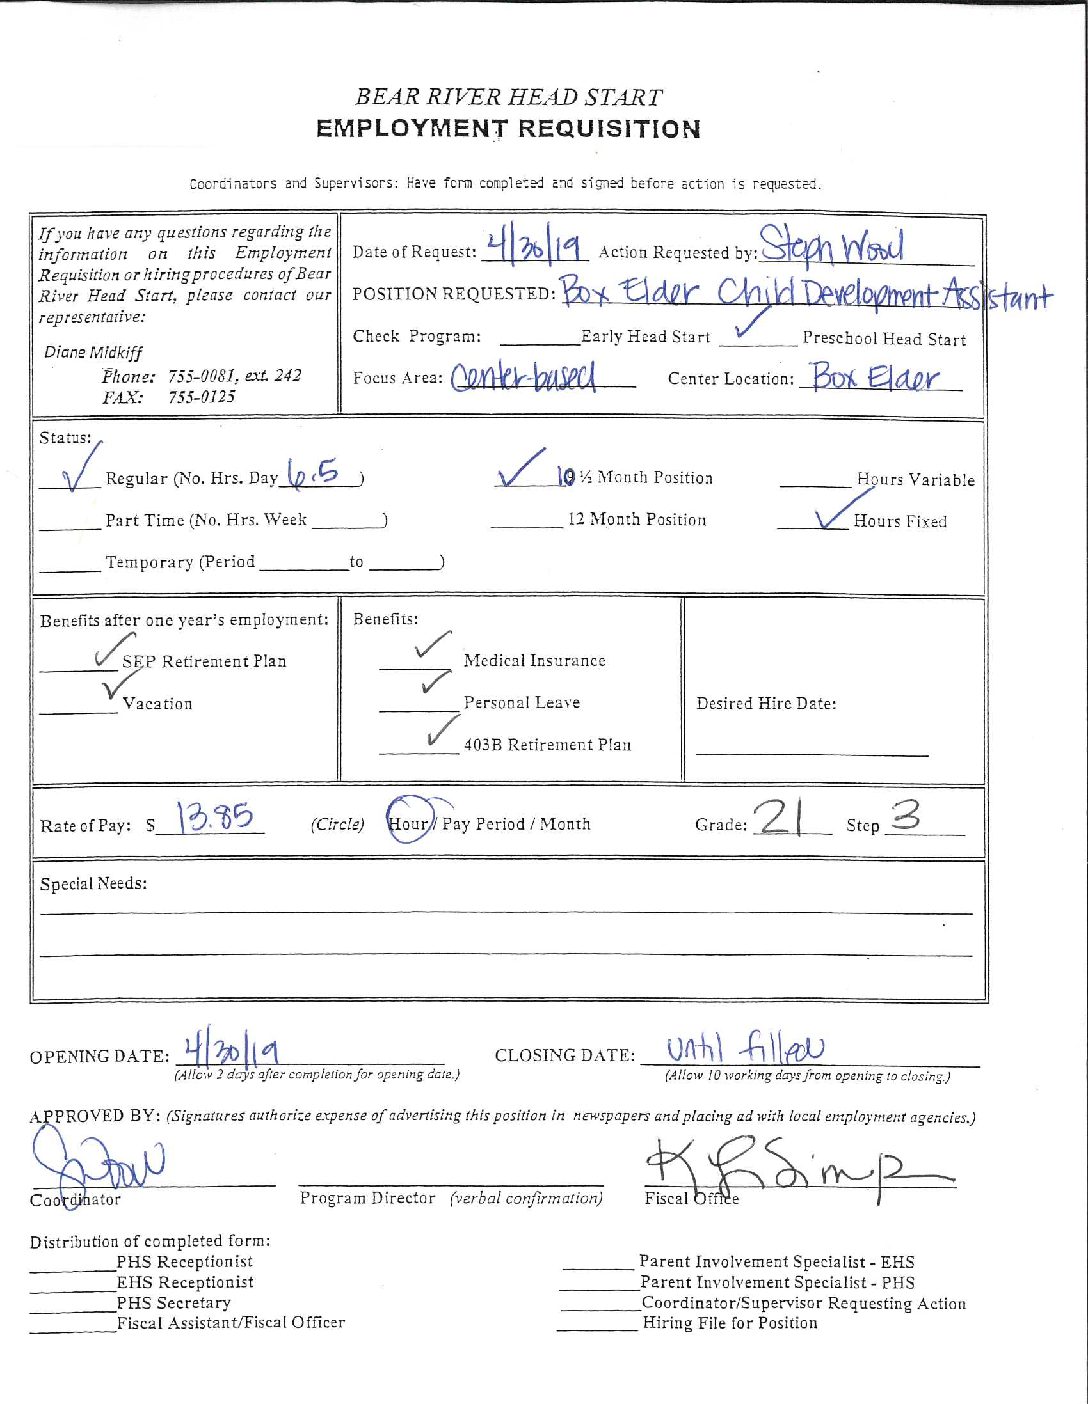 BEAR RIVER HEAD START
EMPLOYMENT REQUISITION
Coordinators and Supervisors: Have form completed and signed before action is requested.
If you have any questions regarding the
information on this Employment
Requisition or hiring procedures of Bear
River Head Start, please contact our
representative:
Diane Midkiff
Phone: 755-0081, ext. 242
FAX: 755-0125
Date of Request: 4/30/19 Action Requested by: Steph Wood
POSITION REQUESTED: Box Elder Child Development Assistant
Check Program: ________Early Head Start ___✓___ Preschool Head Start
Focus Area: Center-based Center Location: Box Elder
Status:
✓ Regular (No. Hrs. Day 6.5 ) ✓ 10 ½ Month Position ________ Hours Variable
______ Part Time (No. Hrs. Week _______) ________ 12 Month Position ✓ Hours Fixed
______ Temporary (Period _________to _______)
Benefits after one year's employment:
✓ SEP Retirement Plan
✓ Vacation
Benefits:
✓ Medical Insurance
✓ Personal Leave
✓ 403B Retirement Plan
Desired Hire Date:
Rate of Pay: $ 13.85 (Circle) Hour / Pay Period / Month Grade: 21 Step 3
Special Needs:
OPENING DATE: 4/30/19 CLOSING DATE: until filled
(Allow 2 days after completion for opening date.) (Allow 10 working days from opening to closing.)
APPROVED BY: (Signatures authorize expense of advertising this position in newspapers and placing ad with local employment agencies.)
Coordinator Program Director (verbal confirmation) Fiscal Office
Distribution of completed form:
________PHS Receptionist ________ Parent Involvement Specialist - EHS
________EHS Receptionist ________Parent Involvement Specialist - PHS
________PHS Secretary ________Coordinator/Supervisor Requesting Action
________Fiscal Assistant/Fiscal Officer ________ Hiring File for Position